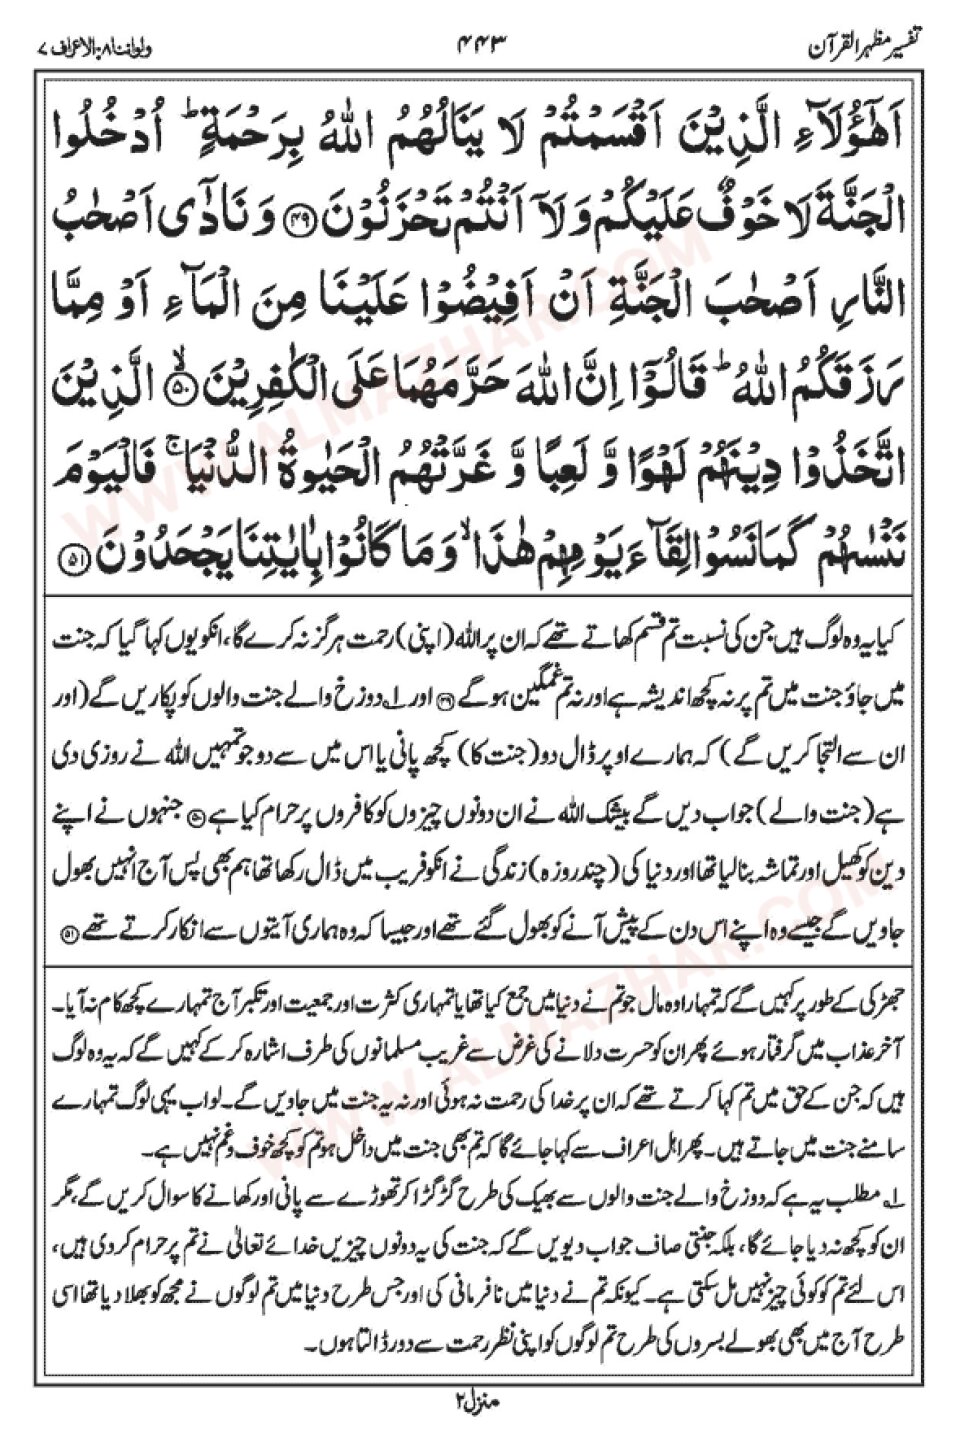 تفسیر مظہر القرآن
۴۴۳
ولواننا ۸: الاعراف ۷
اَهٰٓؤُلَآءِ الَّذِيْنَ اَقْسَمْتُمْ لَا يَنَالُهُمُ اللّٰهُ بِرَحْمَةٍ ؕ اُدْخُلُوا
الْجَنَّةَ لَا خَوْفٌ عَلَيْكُمْ وَلَآ اَنْتُمْ تَحْزَنُوْنَ ﴿۴۹﴾ وَ نَادٰٓى اَصْحٰبُ
النَّارِ اَصْحٰبَ الْجَنَّةِ اَنْ اَفِيْضُوْا عَلَيْنَا مِنَ الْمَآءِ اَوْ مِمَّا
رَزَقَكُمُ اللّٰهُ ؕ قَالُوْٓا اِنَّ اللّٰهَ حَرَّمَهُمَا عَلَى الْكٰفِرِيْنَ ﴿۵۰﴾ۙ الَّذِيْنَ
اتَّخَذُوْا دِيْنَهُمْ لَهْوًا وَّ لَعِبًا وَّ غَرَّتْهُمُ الْحَيٰوةُ الدُّنْيَا ۚ فَالْيَوْمَ
نَنْسٰىهُمْ كَمَا نَسُوْا لِقَآءَ يَوْمِهِمْ هٰذَا ۙ وَ مَا كَانُوْا بِاٰيٰتِنَا يَجْحَدُوْنَ ﴿۵۱﴾
کیا یہ وہ لوگ ہیں جن کی نسبت تم قسم کھاتے تھے کہ ان پر اللہ (اپنی) رحمت ہرگز نہ کرے گا، انکو یوں کہا گیا کہ جنت
میں جاؤ جنت میں تم پر نہ کچھ اندیشہ ہے اور نہ تم غمگین ہو گے ﴿۴۹﴾ اور ۱؎ دوزخ والے جنت والوں کو پکاریں گے (اور
ان سے التجا کریں گے) کہ ہمارے اوپر ڈال دو (جنت کا) کچھ پانی یا اس میں سے دو جو تمہیں اللہ نے روزی دی
ہے (جنت والے) جواب دیں گے بیشک اللہ نے ان دونوں چیزوں کو کافروں پر حرام کیا ہے ﴿۵۰﴾ جنہوں نے اپنے
دین کو کھیل اور تماشہ بنا لیا تھا اور دنیا کی (چند روزہ) زندگی نے انکو فریب میں ڈال رکھا تھا ہم بھی پس آج انہیں بھول
جاویں گے جیسے وہ اپنے اس دن کے پیش آنے کو بھول گئے تھے اور جیسا کہ وہ ہماری آیتوں سے انکار کرتے تھے ﴿۵۱﴾
جھڑکی کے طور پر کہیں گے کہ تمہارا وہ مال جو تم نے دنیا میں جمع کیا تھا یا تمہاری کثرت اور جمعیت اور تکبر آج تمہارے کچھ کام نہ آیا۔
آخر عذاب میں گرفتار ہوئے پھر ان کو حسرت دلانے کی غرض سے غریب مسلمانوں کی طرف اشارہ کر کے کہیں گے کہ یہ وہ لوگ
ہیں کہ جن کے حق میں تم کہا کرتے تھے کہ ان پر خدا کی رحمت نہ ہوئی اور نہ یہ جنت میں جاویں گے۔ لو اب یہی لوگ تمہارے
سامنے جنت میں جاتے ہیں۔ پھر اہل اعراف سے کہا جائے گا کہ تم بھی جنت میں داخل ہو تم کو کچھ خوف و غم نہیں ہے۔
۱؎ مطلب یہ ہے کہ دوزخ والے جنت والوں سے بھیک کی طرح گڑگڑا کر تھوڑے سے پانی اور کھانے کا سوال کریں گے، مگر
ان کو کچھ نہ دیا جائے گا، بلکہ جنتی صاف جواب دیویں گے کہ جنت کی یہ دونوں چیزیں خدائے تعالیٰ نے تم پر حرام کر دی ہیں،
اس لئے تم کو کوئی چیز نہیں مل سکتی ہے۔ کیونکہ تم نے دنیا میں نافرمانی کی اور جس طرح دنیا میں تم لوگوں نے مجھ کو بھلا دیا تھا اسی
طرح آج میں بھی بھولے بسروں کی طرح تم لوگوں کو اپنی نظر رحمت سے دور ڈالتا ہوں۔
منزل ۲
WWW.ALMAZHAR.COM
WWW.ALMAZHAR.COM